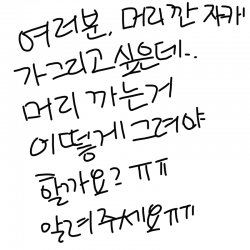 여러분, 머리깐 자캐
가그리고 싶은데..
머리 까는거
이떻게 그려야
할까요? ㅠㅠ
알려주세요ㅠㅠ